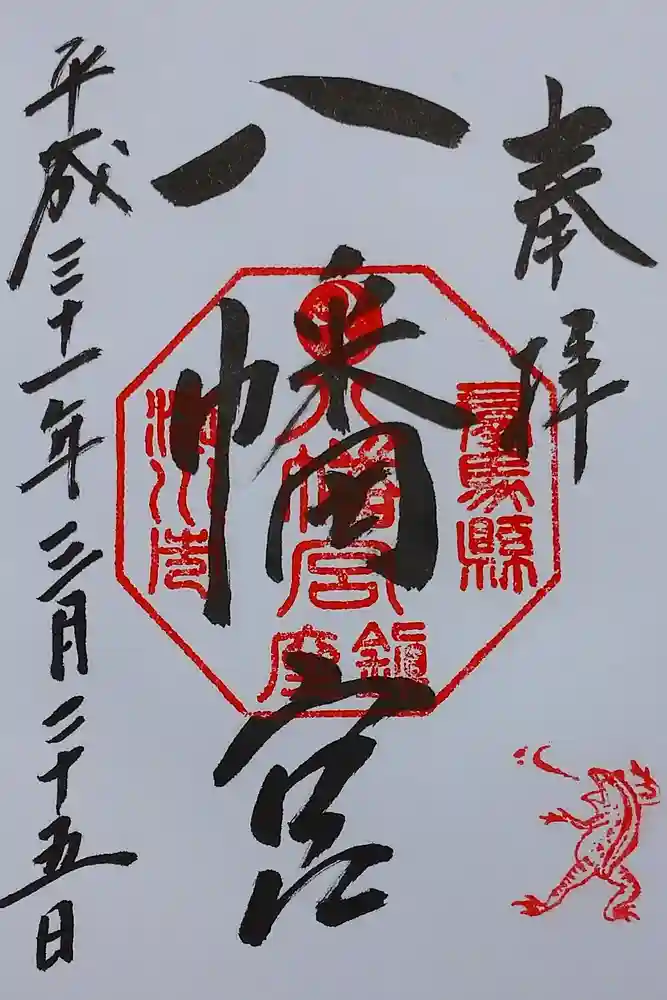 奉拝
八幡宮
平成三十一年三月二十五日
群馬縣
八幡宮
渋川市
鎮座